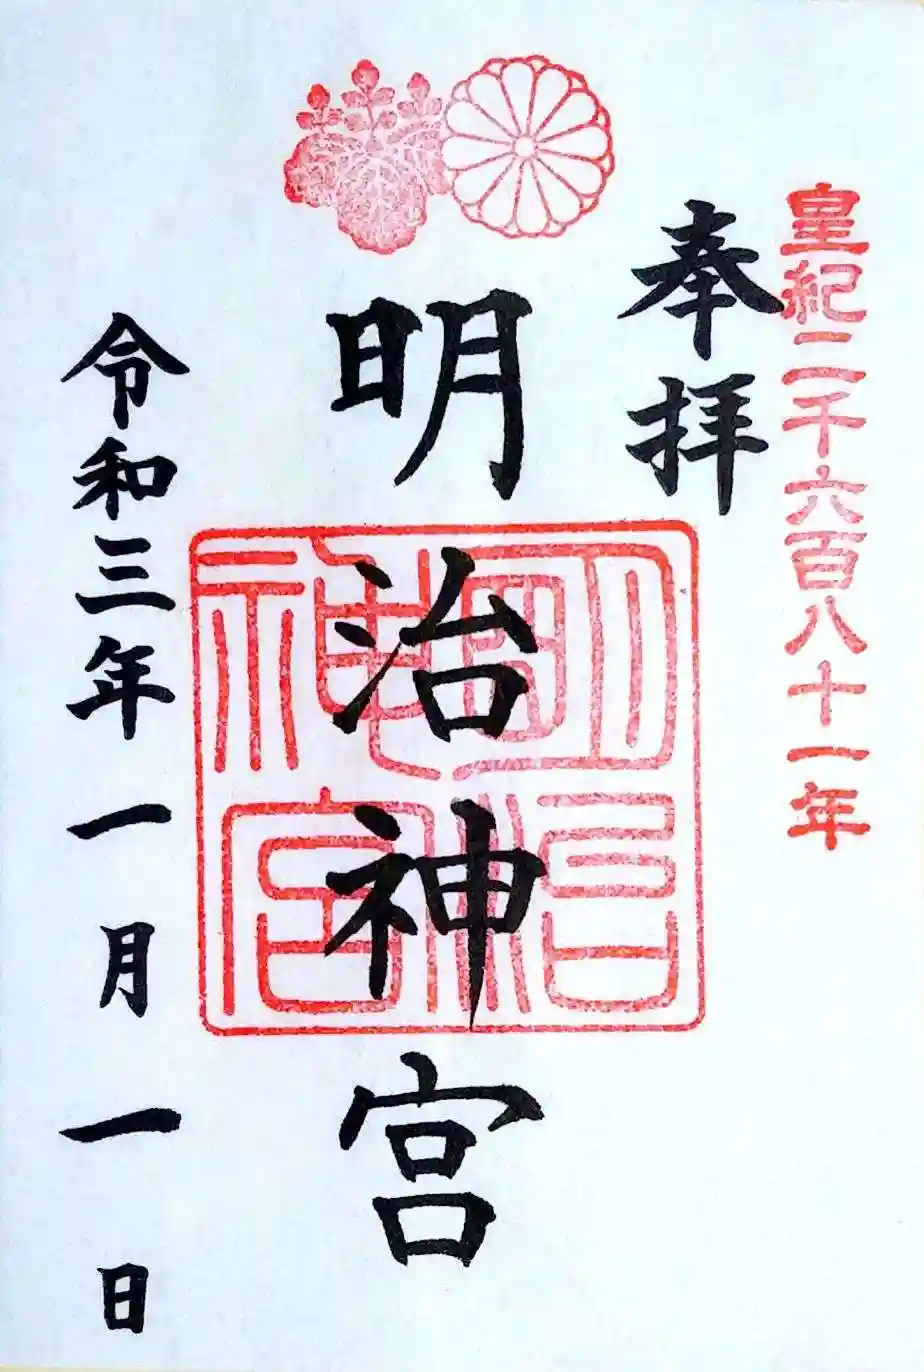 皇紀二千六百八十一年
奉拝
明治神宮
明治神宮
令和三年一月一日